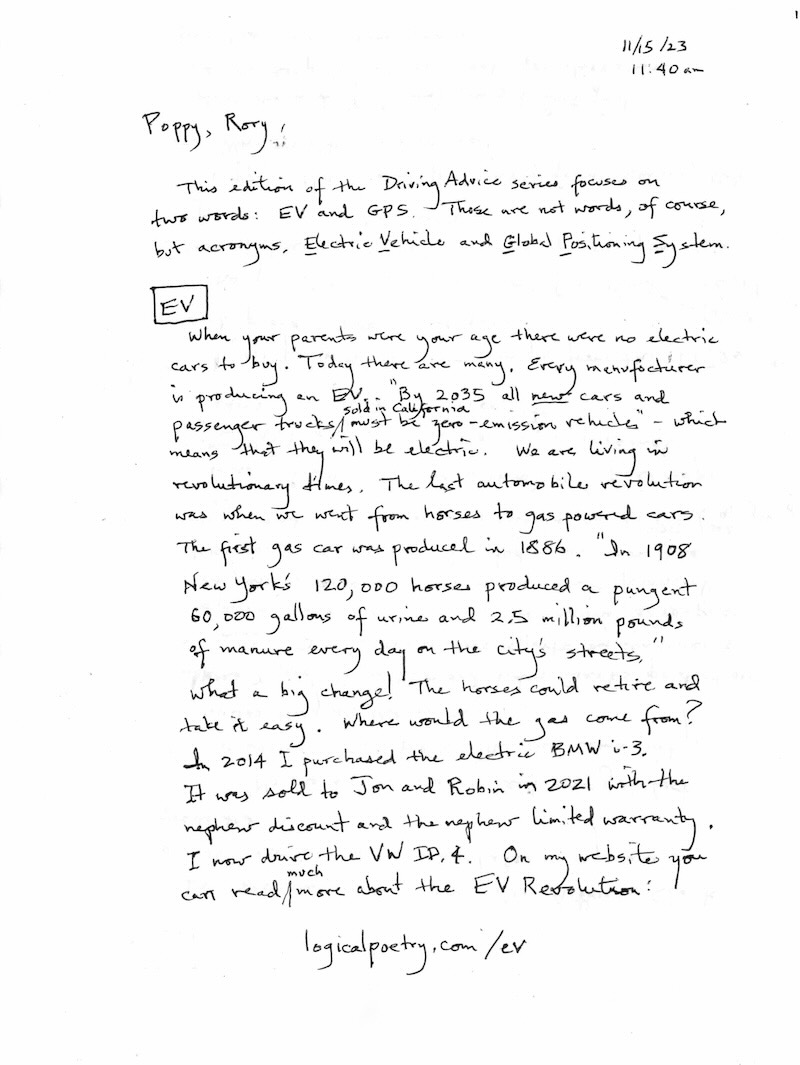 1
11/15/23
11:40 am
Poppy, Rory,
This edition of the Driving Advice series focuses on
two words: EV and GPS. Those are not words, of course,
but acronyms, Electric Vehicle and Global Positioning System.
EV
When your parents were your age there were no electric
cars to buy. Today there are many. Every manufacturer
is producing an EV. "By 2035 all new cars and
passenger trucks/sold in California must be zero-emission vehicles" - which
means that they will be electric. We are living in
revolutionary times. The last automobile revolution
was when we went from horses to gas powered cars.
The first gas car was produced in 1886. "In 1908
New York's 120,000 horses produced a pungent
60,000 gallons of urine and 2.5 million pounds
of manure every day on the city's streets."
What a big change! The horses could retire and
take it easy. Where would the gas come from?
In 2014 I purchased the electric BMW i-3.
It was sold to Jon and Robin in 2021 with the
nephew discount and the nephew limited warranty.
I now drive the VW ID.4. On my website you
can read/much more about the EV Revolution:
logicalpoetry.com/ev